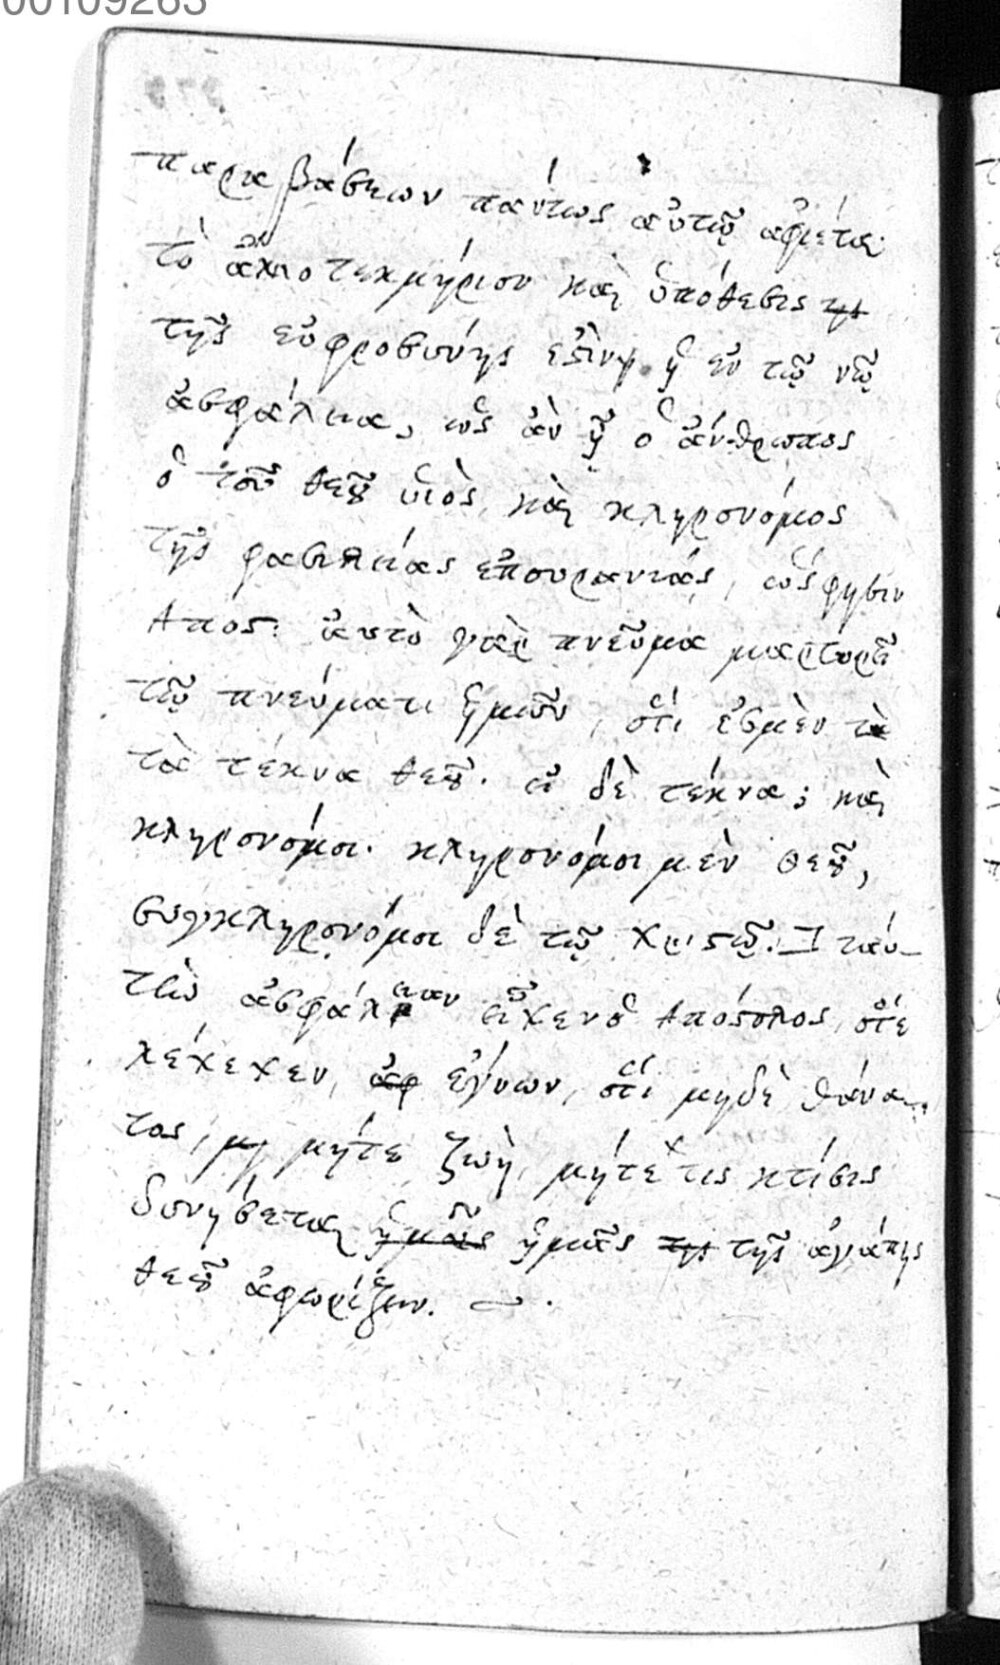 00109263
παραβάσεων πάντως ἀυτῷ ἀφιέται
τὸ ἄλλο τεκμήριον καὶ ὑπόθεσις
τῆς εὐφροσύνης ἐστὶν ἡ ἐν τῷ νῷ
ἀσφάλεια, ὡς ἀν ᾖ ὁ ἄνθρωπος
ὁ τοῦ θεοῦ ὑιὸς καὶ κληρονόμος
τῆς βασιλείας ἐπουρανίας, ὡς φησιν
Αποσ: ἀυτὸ γὰρ πνεῦμα μαρτυρεῖ
τῷ πνεύματι ἡμῶν, ὅτι ἐσμὲν
τὰ τέκνα θεοῦ. εἰ δὲ τέκνα; καὶ
κληρονόμοι. κληρονόμοι μὲν θεοῦ,
συγκληρονόμοι δὲ τῷ Χριστῷ. ταύ-
την ἀσφάλειαν εἶχεν ὁ Απόστολος, ὅτε
λέχεχεν, ἐγνων, ὅτι μηδὲ θάνα-
τος, μήτε ζωὴ, μήτε τις κτίσις
δυνήσεται ἡμᾶς ἡμᾶς τῆς ἀγάπης
θεοῦ ἀφωρίζειν.